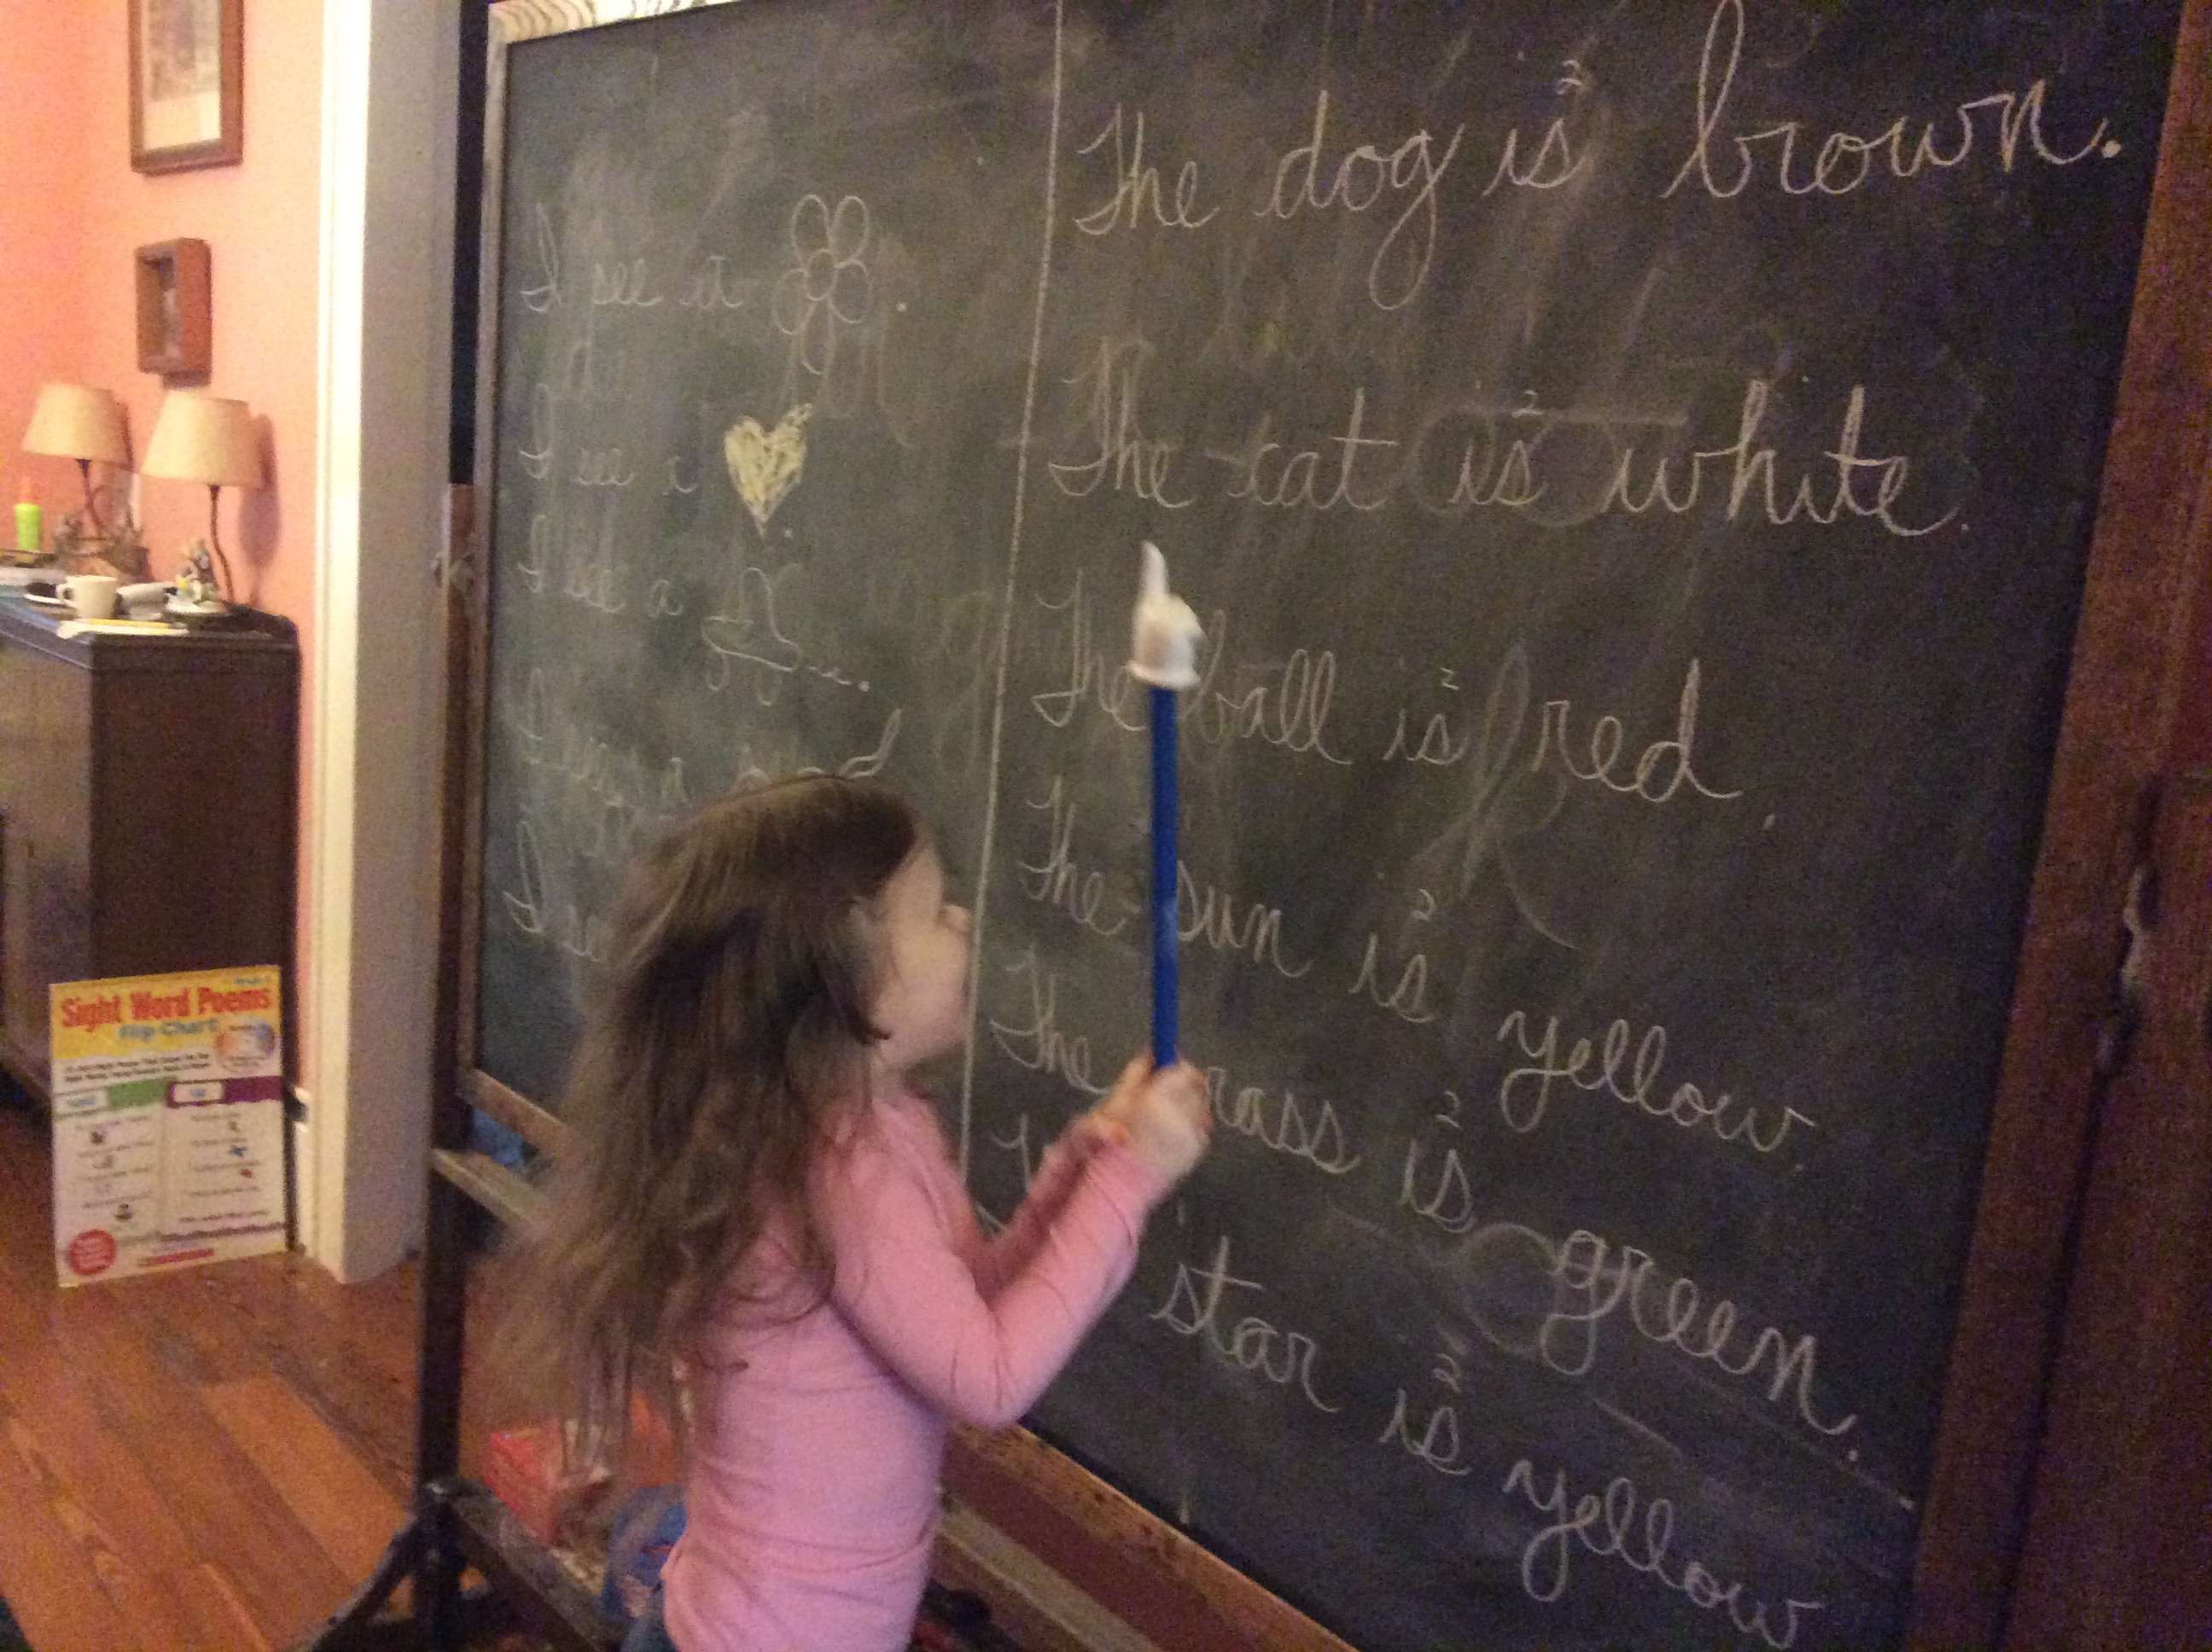 The dog is brown.
The cat is white.
The ball is red.
The sun is yellow.
The grass is green.
star is yellow
2
2
2
2
2
2
I see a
I see a
I see a
a
I se
Sight Word Poems
Flip Chart